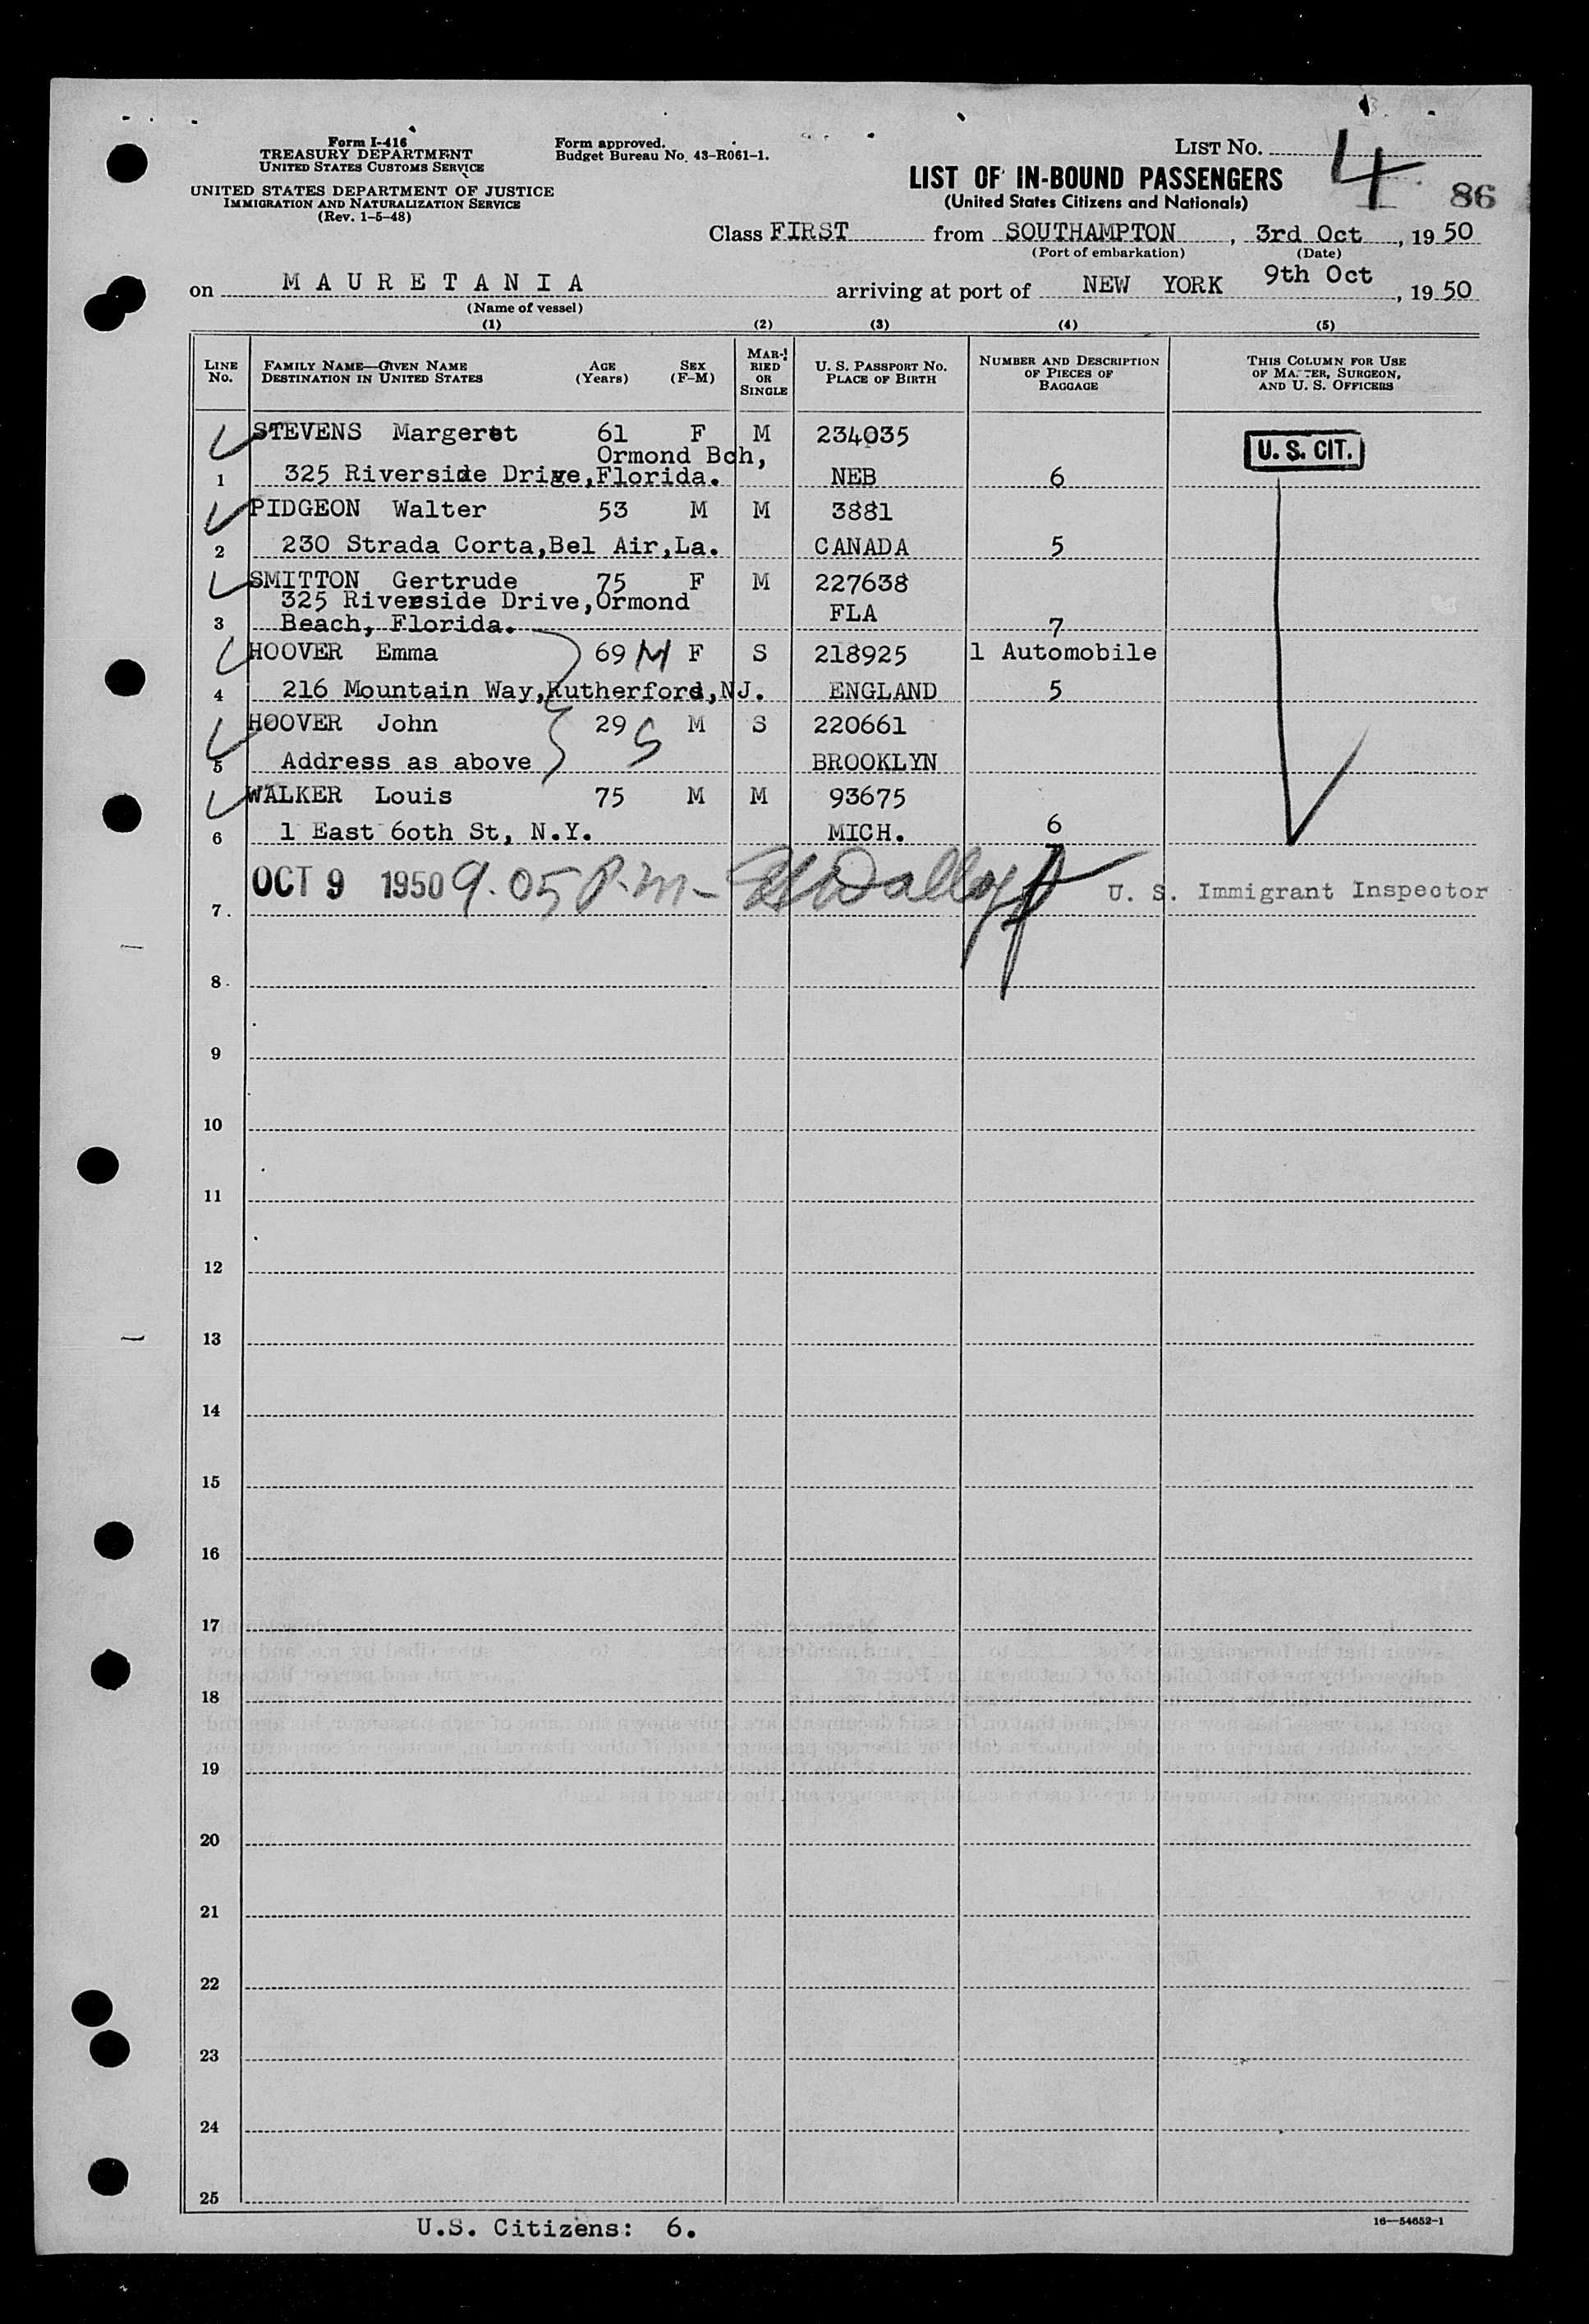 Form I-416
TREASURY DEPARTMENT
UNITED STATES CUSTOMS SERVICE
UNITED STATES DEPARTMENT OF JUSTICE
IMMIGRATION AND NATURALIZATION SERVICE
(Rev. 1-5-48)
Form approved.
Budget Bureau No. 43-R061-1.
LIST NO. 4
LIST OF IN-BOUND PASSENGERS
(United States Citizens and Nationals)
86
Class FIRST from SOUTHAMPTON, 3rd Oct, 1950
(Port of embarkation) (Date)
on MAURETANIA arriving at port of NEW YORK 9th Oct, 1950
(Name of vessel)
(1) (2) (3) (4) (5)
LINE No. FAMILY NAME—GIVEN NAME DESTINATION IN UNITED STATES AGE (Years) SEX (F-M) MARRIED OR SINGLE U. S. PASSPORT NO. PLACE OF BIRTH NUMBER AND DESCRIPTION OF PIECES OF BAGGAGE THIS COLUMN FOR USE OF MASTER, SURGEON, AND U. S. OFFICERS
STEVENS Margeret 61 F M 234035 U. S. CIT.
Ormond Bch,
1 325 Riverside Drive, Florida. NEB 6
PIDGEON Walter 53 M M 3881
2 230 Strada Corta, Bel Air, La. CANADA 5
SMITTON Gertrude 75 F M 227638
325 Riverside Drive, Ormond FLA
3 Beach, Florida. 7
HOOVER Emma 69 M F S 218925 1 Automobile
4 216 Mountain Way, Rutherford, NJ. ENGLAND 5
HOOVER John 29 S M S 220661
5 Address as above BROOKLYN
WALKER Louis 75 M M 93675
6 1 East 60th St, N.Y. MICH. 6
OCT 9 1950 9.05 P.m- U. S. Immigrant Inspector
7
8
9
10
11
12
13
14
15
16
17
18
19
20
21
22
23
24
25
U.S. Citizens: 6.
16—54652-1